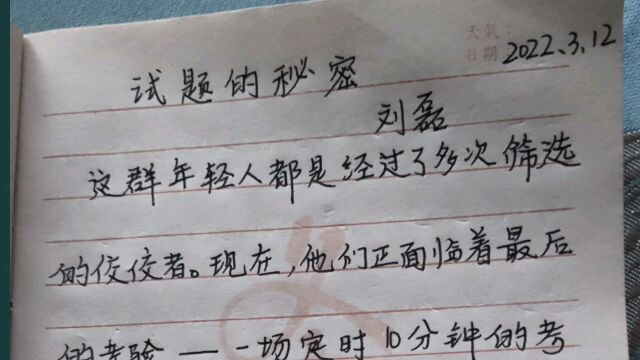 天气:
日期 2022.3.12
试题的秘密
刘磊
这群年轻人都是经过了多次筛选
的佼佼者。现在,他们正面临着最后
的考验——一场定时10分钟的考